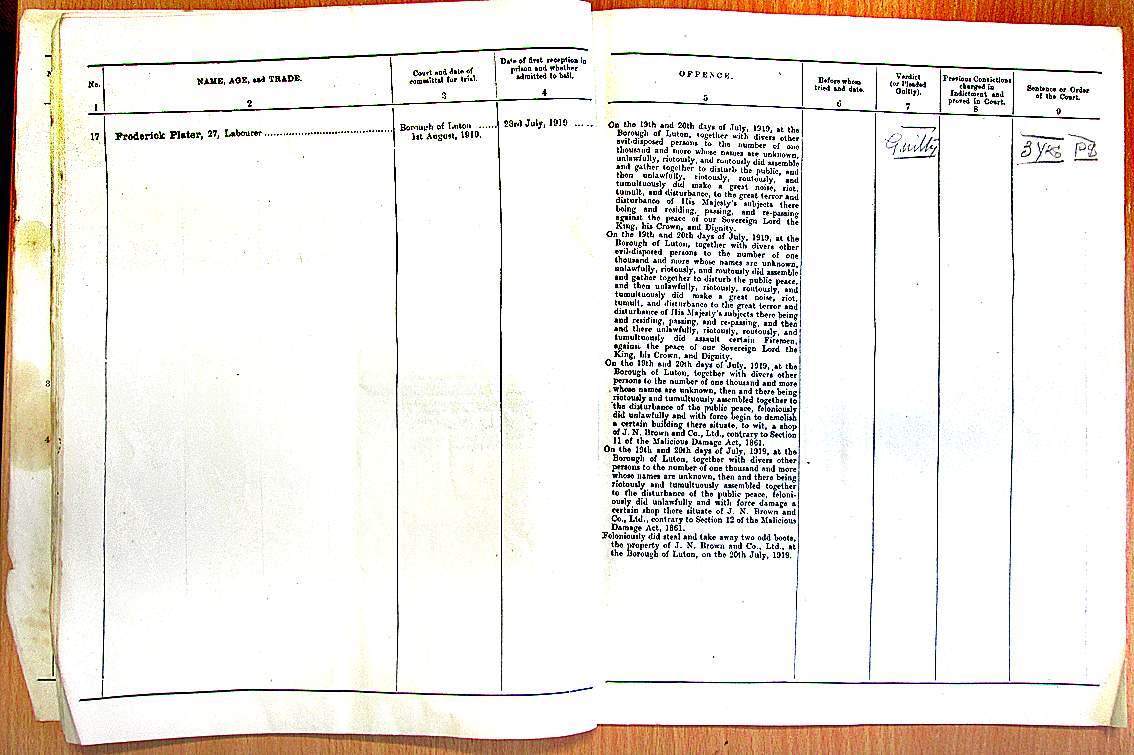 No.
NAME, AGE, and TRADE.
Court and date of
committal for trial.
Date of first reception in
prison and whether
admitted to bail.
OFFENCE.
Before whom
tried and date.
Verdict
(or Pleaded
Guilty).
Previous Convictions
charged in
Indictment and
proved in Court.
Sentence or Order
of the Court.
1
2
3
4
5
6
7
8
9
17
Frederick Plater, 27, Labourer
Borough of Luton
1st August, 1919.
23rd July, 1919
On the 19th and 20th days of July, 1919, at the
Borough of Luton, together with divers other
evil-disposed persons to the number of one
thousand and more whose names are unknown,
unlawfully, riotously, and routously did assemble
and gather together to disturb the public, and
then unlawfully, riotously, routously, and
tumultuously did make a great noise, riot,
tumult, and disturbance, to the great terror and
disturbance of His Majesty's subjects there
being and residing, passing, and re-passing
against the peace of our Sovereign Lord the
King, his Crown, and Dignity.
On the 19th and 20th days of July, 1919, at the
Borough of Luton, together with divers other
evil-disposed persons to the number of one
thousand and more whose names are unknown,
unlawfully, riotously, and routously did assemble
and gather together to disturb the public peace,
and then unlawfully, riotously, routously, and
tumultuously did make a great noise, riot,
tumult, and disturbance to the great terror and
disturbance of His Majesty's subjects there being
and residing, passing, and re-passing, and then
and there unlawfully, riotously, routously, and
tumultuously did assault certain Firemen,
against the peace of our Sovereign Lord the
King, his Crown, and Dignity.
On the 19th and 20th days of July, 1919, at the
Borough of Luton, together with divers other
persons to the number of one thousand and more
whose names are unknown, then and there being
riotously and tumultuously assembled together to
the disturbance of the public peace, feloniously
did unlawfully and with force begin to demolish
a certain building there situate, to wit, a shop
of J. N. Brown and Co., Ltd., contrary to Section
11 of the Malicious Damage Act, 1861.
On the 19th and 20th days of July, 1919, at the
Borough of Luton, together with divers other
persons to the number of one thousand and more
whose names are unknown, then and there being
riotously and tumultuously assembled together
to the disturbance of the public peace, feloni-
ously did unlawfully and with force damage a
certain shop there situate of J. N. Brown and
Co., Ltd., contrary to Section 12 of the Malicious
Damage Act, 1861.
Feloniously did steal and take away two odd boots,
the property of J. N. Brown and Co., Ltd., at
the Borough of Luton, on the 20th July, 1919.
Guilty
3 yrs PS
3
4